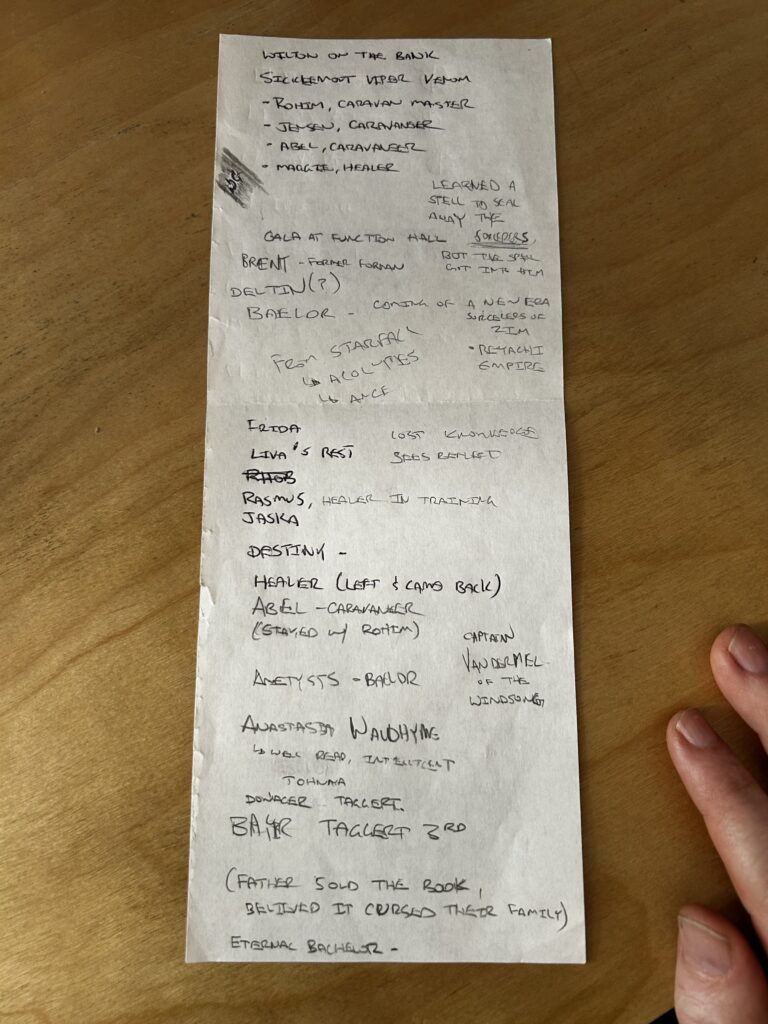 WILTON ON THE BANK
SICKLEMOOT VIPER VENOM
- ROHIM, CARAVAN MASTER
- JENSEN, CARAVANEER
- ABEL, CARAVANEER
- MAGGIE, HEALER
LEARNED A
SPELL TO SEAL
AWAY THE
SORCERERS,
BUT THE SPELL
GOT INTO HIM
GALA AT FUNCTION HALL
BRENT - FORMER FORMAN
DELTIN(?)
BAELOR - COMING OF A NEW ERA
SORCELERS OF
ZIM
• REYACHI
EMPIRE
FROM STARFALL
↳ ACOLYTES
↳
FRIDA
LIVA'S REST
LOST KNOWLEDGE
SEES
RHOB
RASMUS, HEALER IN TRAINING
JASKA
DESTINY -
HEALER (LEFT & CAME BACK)
ABEL - CARAVANEER
(STAYED W/ ROHIM)
CAPTAIN
VANDERMEL
OF THE
WINDSONG
AMETYSTS - BAELOR
ANASTASIA
↳ WELL READ, INTELLIGENT
TOHNAYA
DOWAGER TAGLERT.
TAGLERT 3RD
(FATHER SOLD THE BOOK,
BELIVED IT CURSED THEIR FAMILY)
ETERNAL BACHELOR -